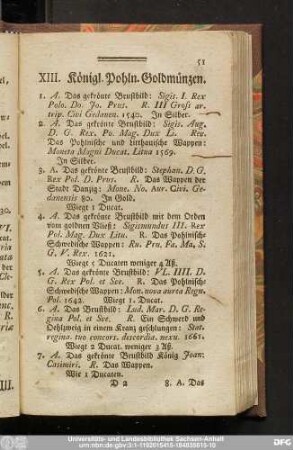 51
XIII. Königl. Pohln. Goldmünzen.
1. A. Das gekrönte Brustbild: Sigis. I. Rex
Polo. Do. To. Prus. R. III Gross ar.
trip. Civi Gedanen. 1540. In Silber.
2. A. Das gekrönte Brustbild: Sigis. Aug.
D. G. Rex. Po. Mag. Dux L. Rev.
Das Pohlnische und litthauische Wappen:
Moneta Magni Ducat. Litua 1569.
In Silber.
3. A. Das gekrönte Brustbild: Stephan. D. G.
Rex Pol. D. Prus. R. Das Wappen der
Stadt Danzig: Mone. No. Aur. Civi. Ge-
danensis 80. In Gold.
Wiegt 1 Ducat.
4. A. Das gekrönte Brustbild mit dem Orden
vom goldnen Vließ: Sigismundus III. Rex
Pol. Mag. Dux Litu. R. Das Pohlnisch-
Schwedische Wappen: Ru. Pru. Fa. Ma, S.
G. V. Rex. 1621.
Wiegt 1 Ducaten weniger 4 Aß.
5. A. Das gekrönte Brustbild: VL. IIII. D.
G. Rex Pol. et Sve. R. Das Pohlnisch-
Schwedische Wappen: Mon. nova aurea Regn.
Pol. 1642. Wiegt 1. Ducat.
6. A. Das Brustbild: Lud. Mar. D. G. Re-
gina Pol. et Sve. R. Ein Schwerdt und
Oehlzweig in einem Kranz geschlungen: Stat.
regina. tuo concors. discordia. nexu. 1661.
Wiegt 2 Ducat. weniger 3 Aß.
7. A. Das gekrönte Brustbild König Joan:
Casimiri. R. Das Wappen.
Wie 1 Ducaten.
D 2 8. A. Das
Universitäts- und Landesbibliothek Sachsen-Anhalt